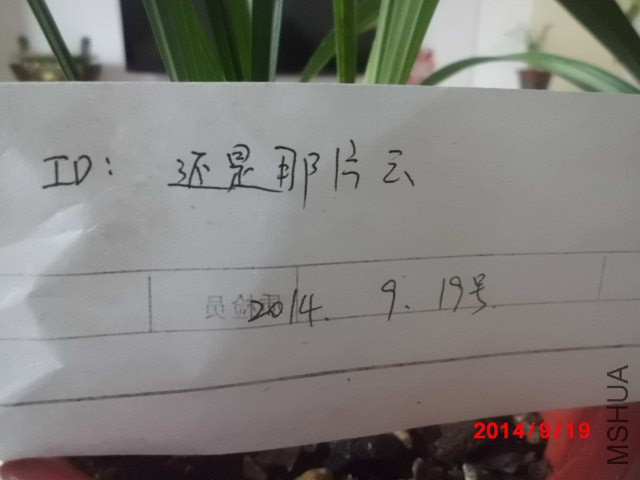 ID: 还是那片云
质检员
2014. 9. 19号
2014/9/19
MSHUA